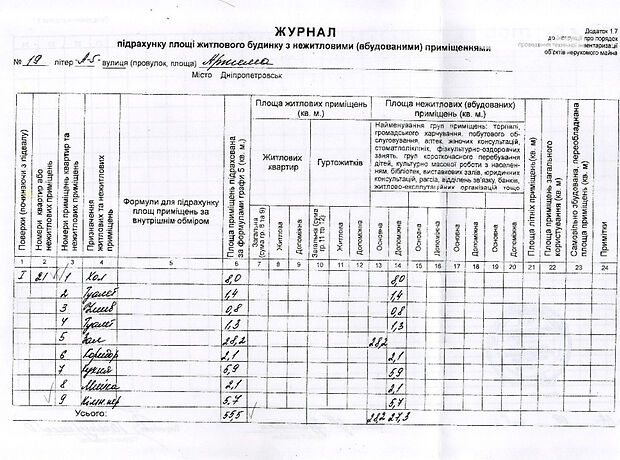 ЖУРНАЛ
підрахунку площі житлового будинку з нежитловими (вбудованими) приміщеннями
Додаток 1.7
до інструкції про порядок
проведення технічної інвентаризації
об'єктів нерухомого майна
№ 19 літер А-5 вулиця (провулок, площа)
Місто Дніпропетровськ
Поверхи (починаючи з підвалу)
Номери квартир або нежитлових приміщень
Номери приміщень квартир та нежитлових приміщень
Призначення житлових та нежитлових приміщень
Формули для підрахунку площ приміщень за внутрішнім обміром
Площа приміщень підрахована за формулами графи 5 (кв. м)
Площа житлових приміщень (кв. м.)
Житлових квартир
Гуртожитків
Площа нежитлових (вбудованих) приміщень (кв. м.)
Найменування груп приміщень: торгівлі,
громадського харчування, побутового об-
слуговування, аптек, жіночих консультацій,
стоматполіклінік, фізкультурно-оздоровчих
занять, груп короткочасного перебування
дітей, культурно масової роботи з населен-
ням, бібліотек, виставкових залів, юридичних
консультацій, рагсів, відділень зв'язку, банків,
житлово-експлуатаційних організацій тощо
Загальна (сума гр. 8 та 9)
Житлова
Допоміжна
Загальна (сума гр. 11 та 12)
Житлова
Допоміжна
Основна
Допоміжна
Основна
Допоміжна
Основна
Допоміжна
Основна
Допоміжна
Площа літніх приміщень (кв. м)
Площа приміщень загального користування (кв. м)
Самовільно збудована, переобладнана площа приміщень (кв. м)
Примітки
1 2 3 4 5 6 7 8 9 10 11 12 13 14 15 16 17 18 19 20 21 22 23 24
I 21 1 Хол 8,0 8,0
2 Туалет 1,4 1,4
3 0,8 0,8
4 Туалет 1,3 1,3
5 Зал 28,2 28,2
6 Коридор 2,1 2,1
7 Кухня 5,9 5,9
8 Мийка 2,1 2,1
9 5,7 5,7
Усього: 55,5 28,2 27,3